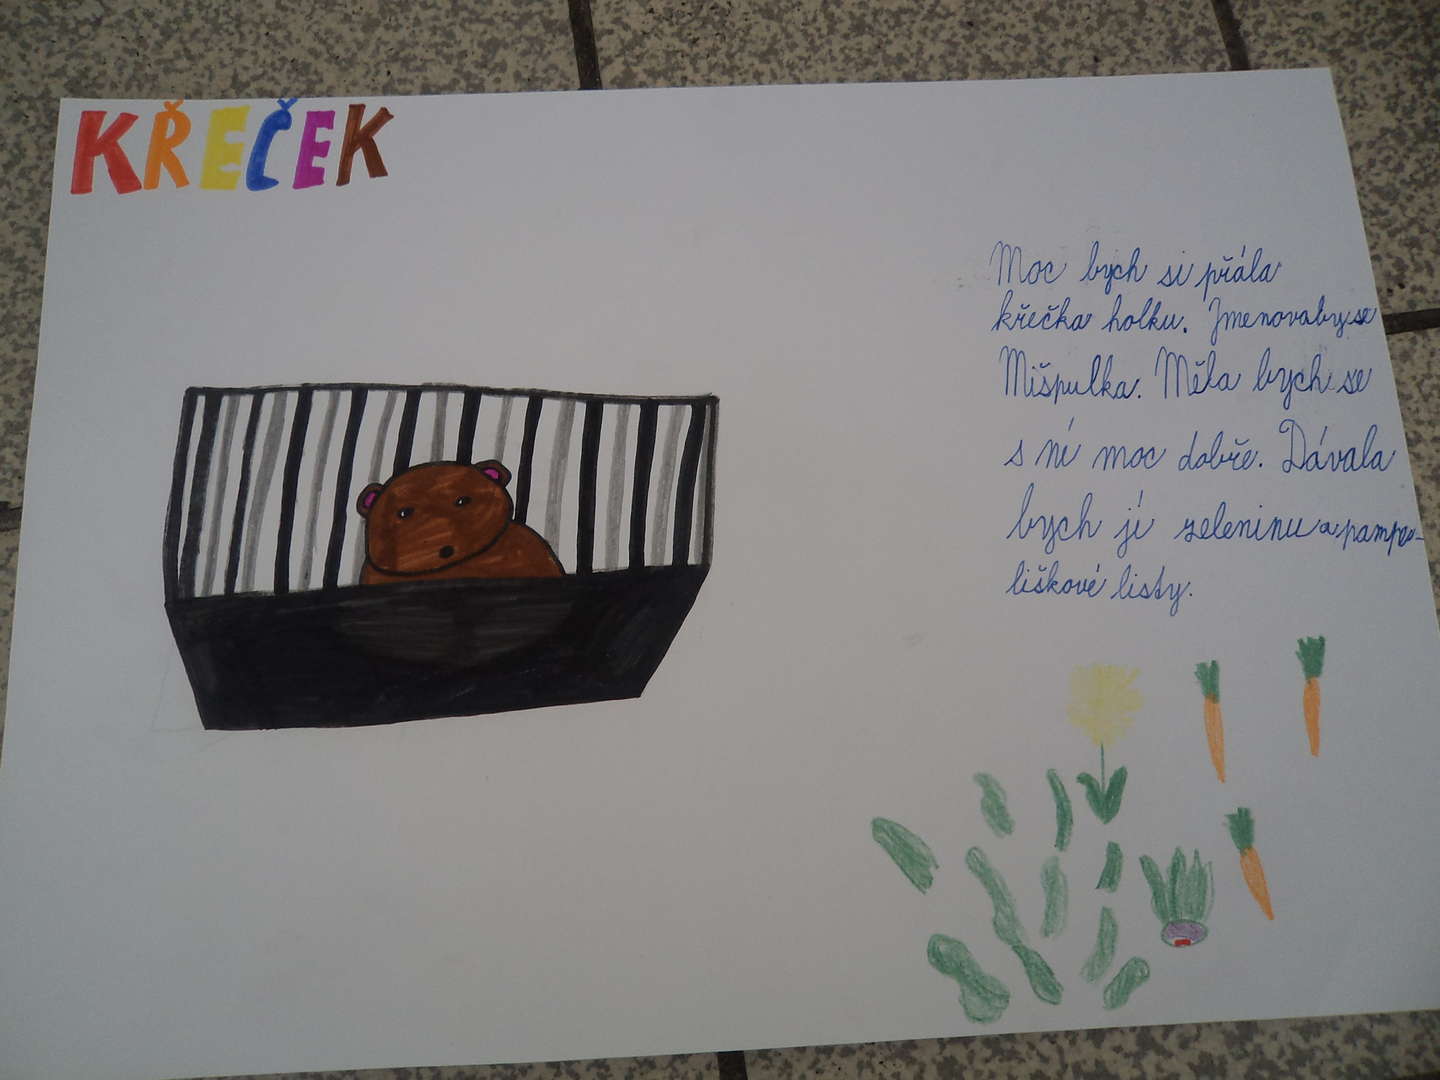 KŘEČEK
Moc bych si přála
křečka holku. Jmenovaby se
Mišpulka. Měla bych se
s ní moc dobře. Dávala
bych jí zeleninu a pampe-
liškové listy.